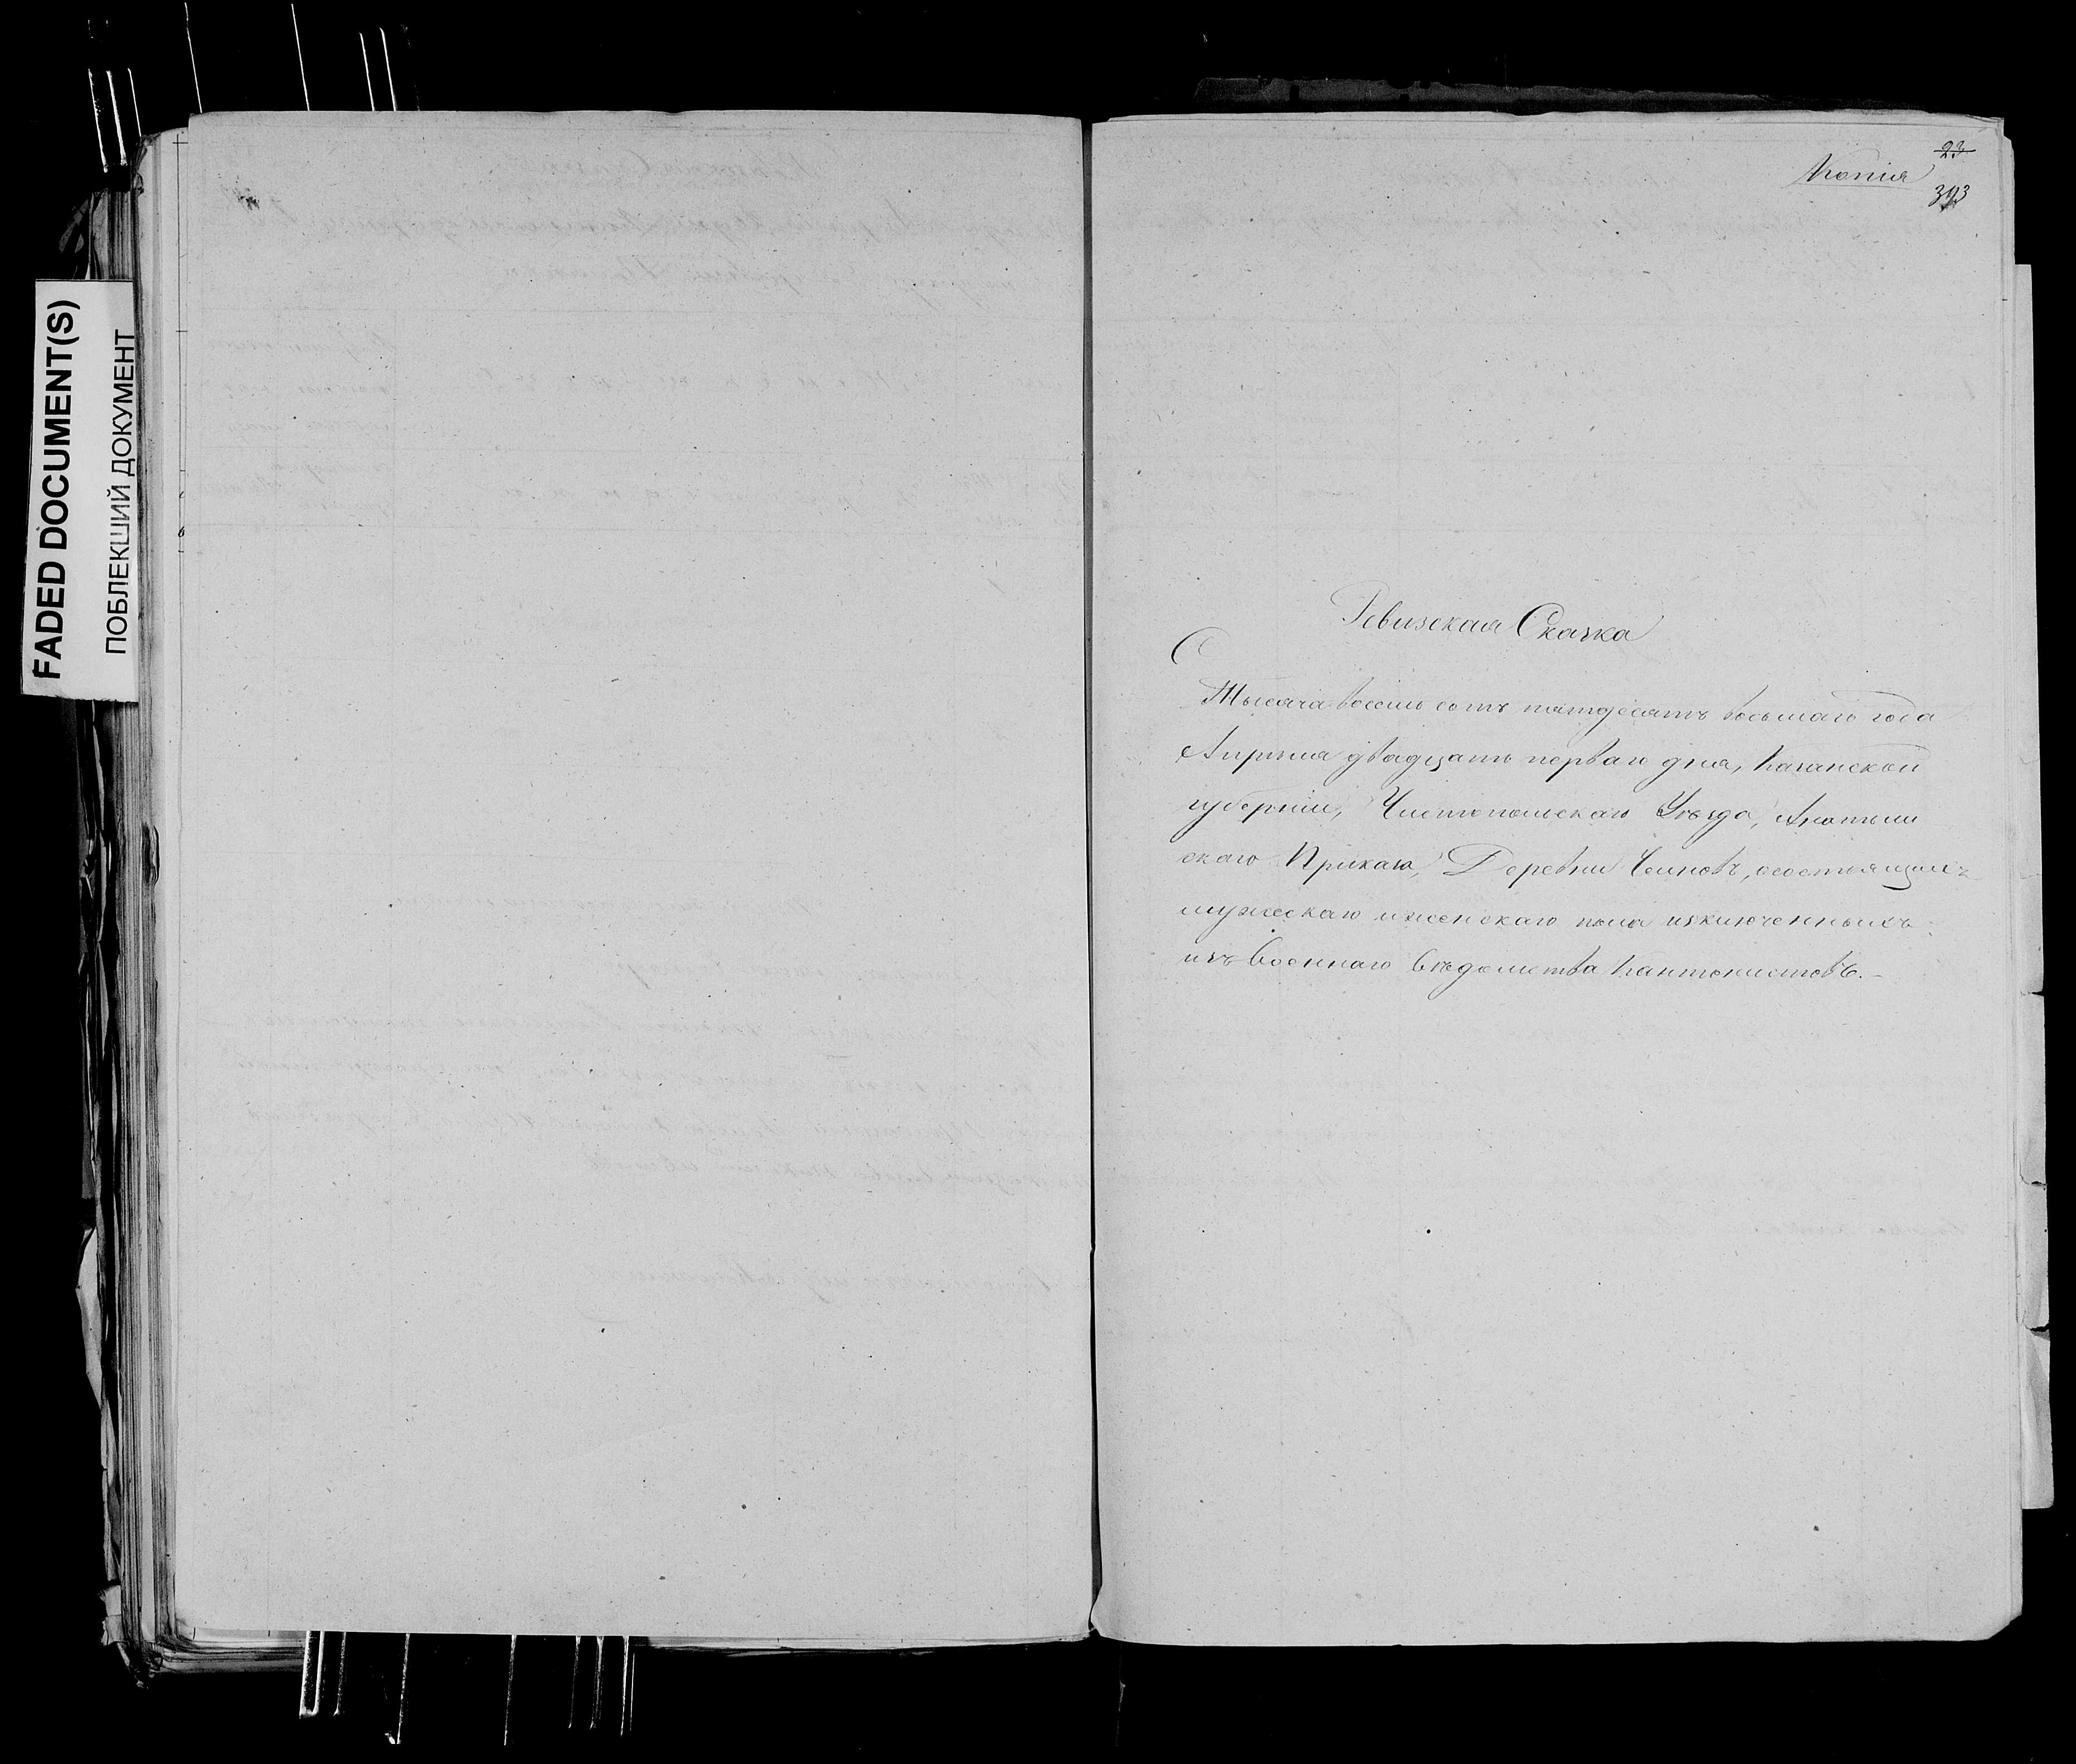 FADED DOCUMENT(S)
ПОБЛЕКШИЙ ДОКУМЕНТ
23
Копия
393
Ревизская Сказка
Тысяча восемь сотъ пятдесятъ восьмаго года
Апрѣля двадцать перваго дня, Казанской
губернiи, Чистопольскаго Уѣзда,
скаго Приказа, Деревни, осостоящихъ
мужескаго и женскаго пола изключенныхъ
изъ Военнаго Вѣдомства Кантонистовъ.-